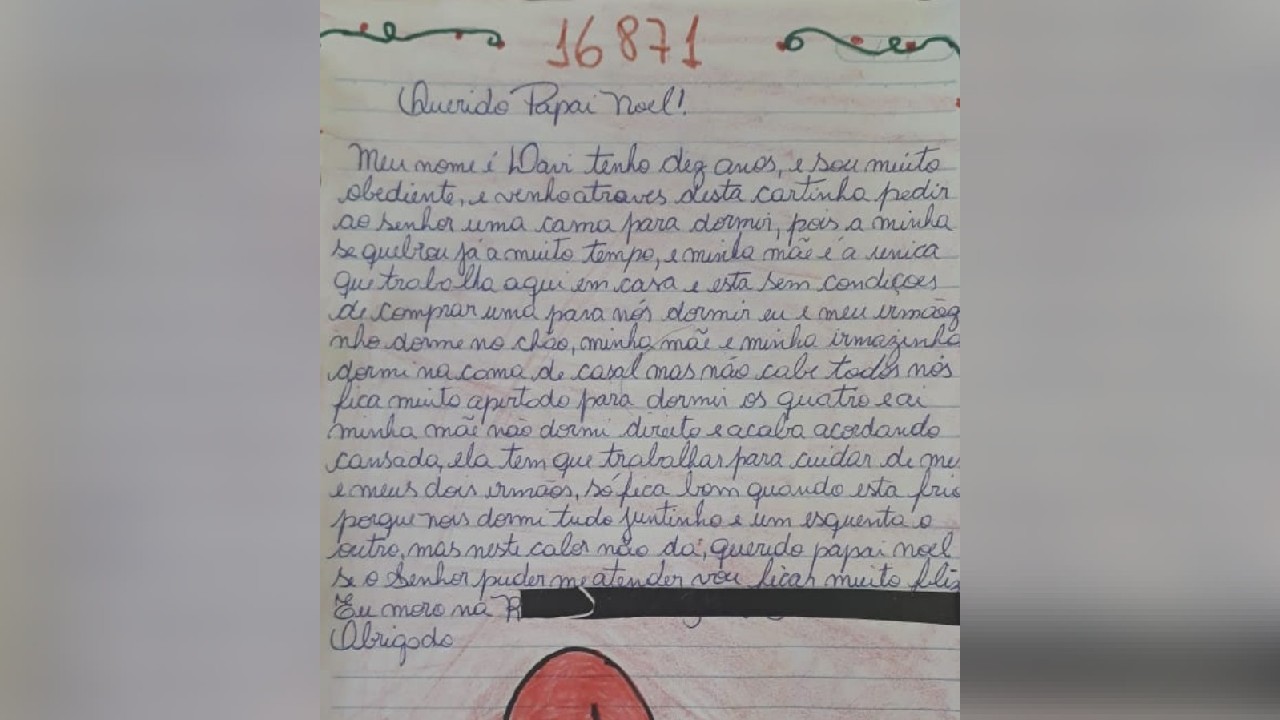 16871
Querido Papai Noel!
Meu nome é Davi tenho dez anos, e sou muito
obediente, e venho atraves desta cartinha pedir
ao senhor uma cama para dormir, pois a minha
se quebrou já a muito tempo, e minha mãe é a unica
que trabalha aqui em casa e esta sem condiçoes
de comprar uma para nós dormir eu e meu irmãoz
nho dorme no chão, minha mãe e minha irmazinha
dormi na cama de casal mas não cabe todos nós
fica muito apertado para dormir os quatro e ai
minha mãe não dormi direito e acaba acordando
cansada, ela tem que trabalhar para cuidar de me
e meus dois irmãos, só fica bom quando esta frio
porque nois dormi tudo juntinho e um esquenta o
outro, mas neste calor não da, querido papai noel
se o Senhor puder me atender vou ficar muito feliz
Eu moro na R
Obrigado